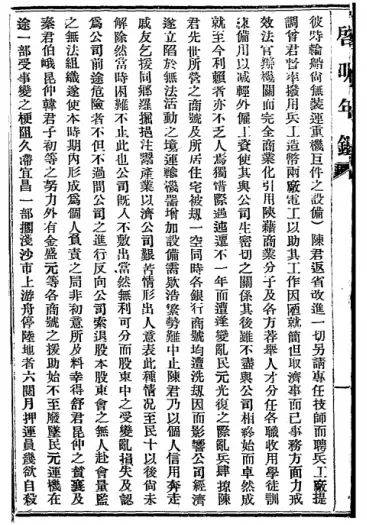 啓明年鑑
彼時輪船尚無裝運重機巨件之設備）陳君返省改進一切另請專任技師而聘兵工廠提
調曾君督率撥用兵工造幣兩廠電工以助其工作因陋就簡但取濟事而已各務方面力戒
效法官辦機關而完全商業化引用陝藉商業分子及各方荐舉人才分任各職收用學徒訓
練備用以減輕外僱工資使其與公司生密切之關係其後雖不盡與公司相終始而卓然成
就至今利賴者亦不乏人焉獨惜際遇迍邅不一年而遭逢變亂民元光復之際亂兵肆掠陳
君先世所營之商號及所居住宅被刼一空同時各銀行商號均遭洗刼因而影響公司經濟
遂立陷於無法活動之境運輸機器增加設備需欵浩繁勢難中止陳君乃以個人信用奔走
戚友乞援同鄉羅掘挹注罄產業以濟公司艱苦情形出人意表此種情况至民十以後尚未
解除然當時困難不止此也公司既入不敷出當然無利可分而股東中之受變亂損失及認
爲公司前途危險者不但不過問公司之進行反向公司索退股本股東會之無人赴會董監
之無法組織遂使本時期內形成爲個人負責之局非初意所及料幸得舒君昆仲之贊襄及
秦君伯峨昆仲韓君子初等之努力外有金盛元等各商號之援助始不至廢墜民元運機在
途一部受事變之梗阻久滯宜昌一部擱淺沙市上游舟停陸地者六閱月押運員幾欲自殺